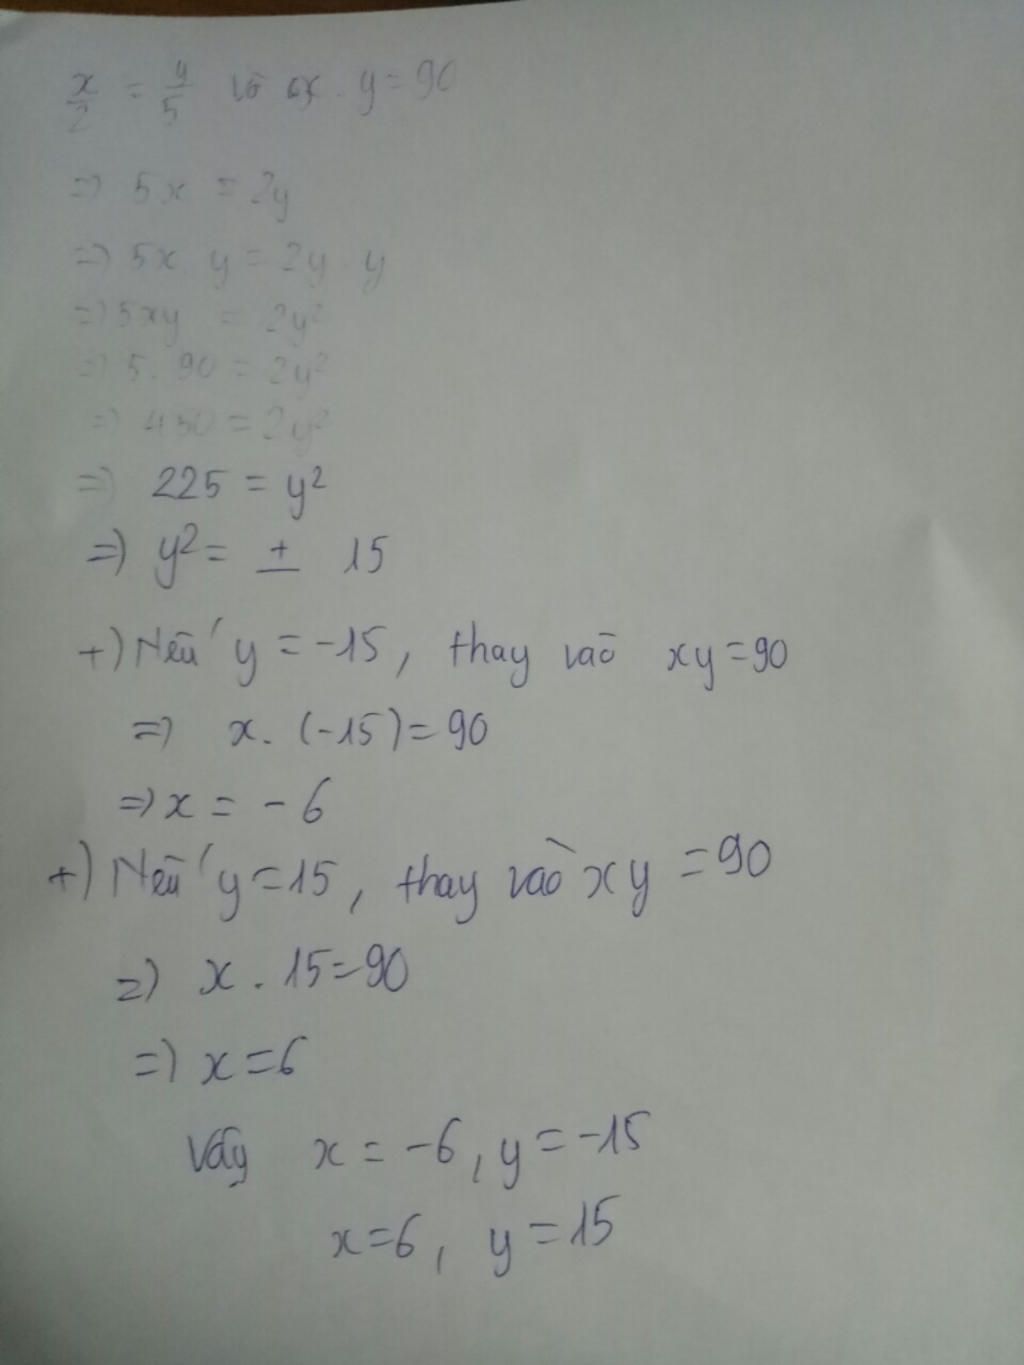 x/2 = y/5 và x . y = 90
=> 5x = 2y
=> 5x y = 2y y
=> 5xy = 2y²
=> 5 . 90 = 2y²
=> 450 = 2y²
=> 225 = y²
=> y² = ± 15
+) Nếu y = -15, thay vào xy = 90
=> x . (-15) = 90
=> x = -6
+) Nếu y = 15, thay vào xy = 90
=> x . 15 = 90
=> x = 6
Vậy x = -6, y = -15
x = 6, y = 15